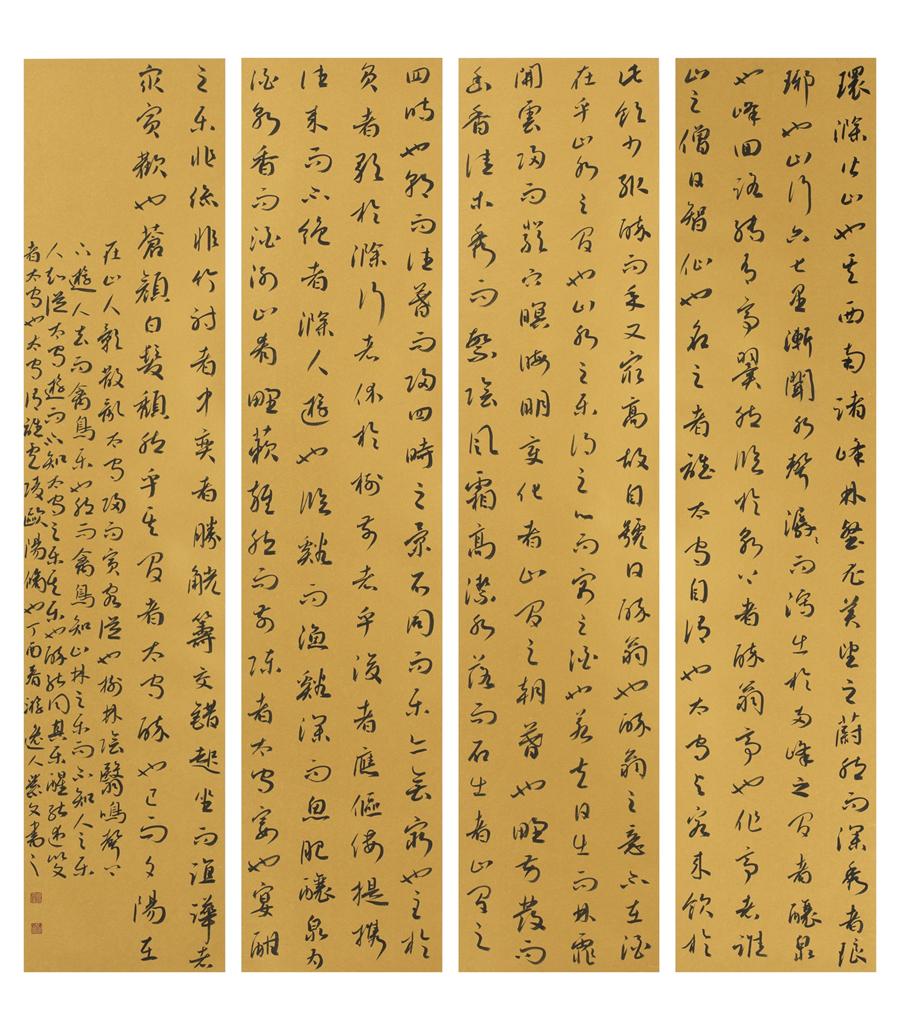 環滁皆山也其西南諸峰林壑尤美望之蔚然而深秀者琅
琊也山行六七里漸聞水聲潺潺而瀉出於兩峰之間者釀泉
也峰回路轉有亭翼然臨於泉上者醉翁亭也作亭者誰
山之僧曰智仙也名之者誰太守自謂也太守與客來飲於
此飲少輒醉而年又最高故自號曰醉翁也醉翁之意不在酒
在乎山水之間也山水之樂得之心而寓之酒也若夫日出而林霏
開雲歸而巖穴暝晦明變化者山間之朝暮也野芳發而
幽香佳木秀而繁陰風霜高潔水落而石出者山間之
四時也朝而往暮而歸四時之景不同而樂亦無窮也至於
負者歌於滁行者休於樹前者呼後者應傴僂提攜
往來而不絕者滁人遊也臨谿而漁谿深而魚肥釀泉為
酒泉香而酒洌山肴野蔌雜然而前陳者太守宴也宴酣
之樂非絲非竹射者中奕者勝觥籌交錯起坐而諠譁者
眾賓歡也蒼顏白髮頹然乎其間者太守醉也已而夕陽在
在山人影散亂太守歸而賓客從也樹林陰翳鳴聲上
下遊人去而禽鳥樂也然而禽鳥知山林之樂而不知人之樂
人知從太守遊而不知太守之樂其樂也醉能同其樂醒能述以文
者太守也太守謂誰廬陵歐陽脩也丁酉春 逸人 文書之